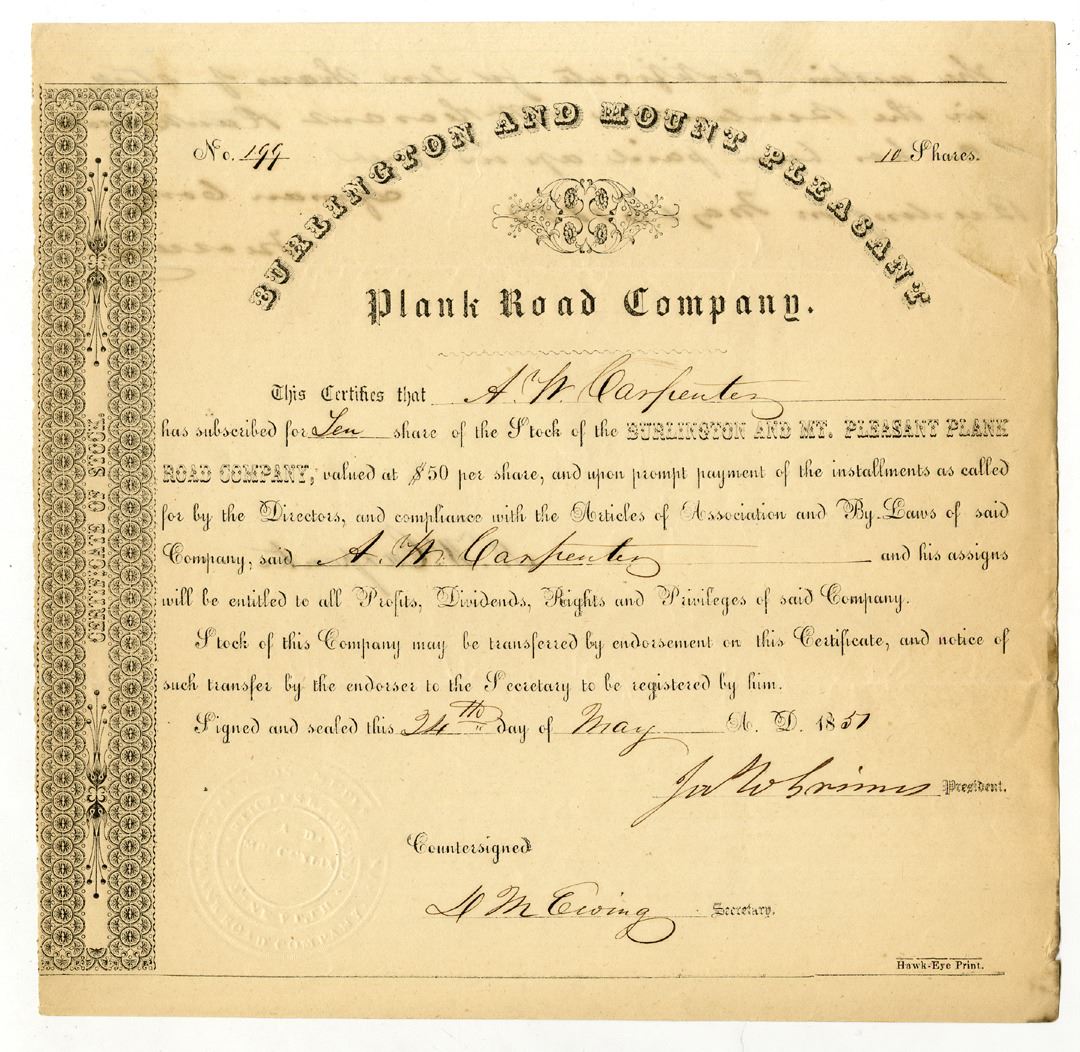 BURLINGTON AND MOUNT PLEASANT
No. 199
10 Shares.
Plank Road Company.
This Certifies that A. W. Carpenter
has subscribed for Ten share of the Stock of the BURLINGTON AND MT. PLEASANT PLANK
ROAD COMPANY, valued at $50 per share, and upon prompt payment of the installments as called
for by the Directors, and compliance with the Articles of Association and By-Laws of said
Company, said A. W. Carpenter and his assigns
will be entitled to all Profits, Dividends, Rights and Privileges of said Company.
Stock of this Company may be transferred by endorsement on this Certificate, and notice of
such transfer by the endorser to the Secretary to be registered by him.
Signed and sealed this 24th day of May A. D. 1851
Jas W Grimes President.
Countersigned
Ewing Secretary.
Hawk-Eye Print.
CERTIFICATE OF STOCK.
ROAD COMPANY
A. D.